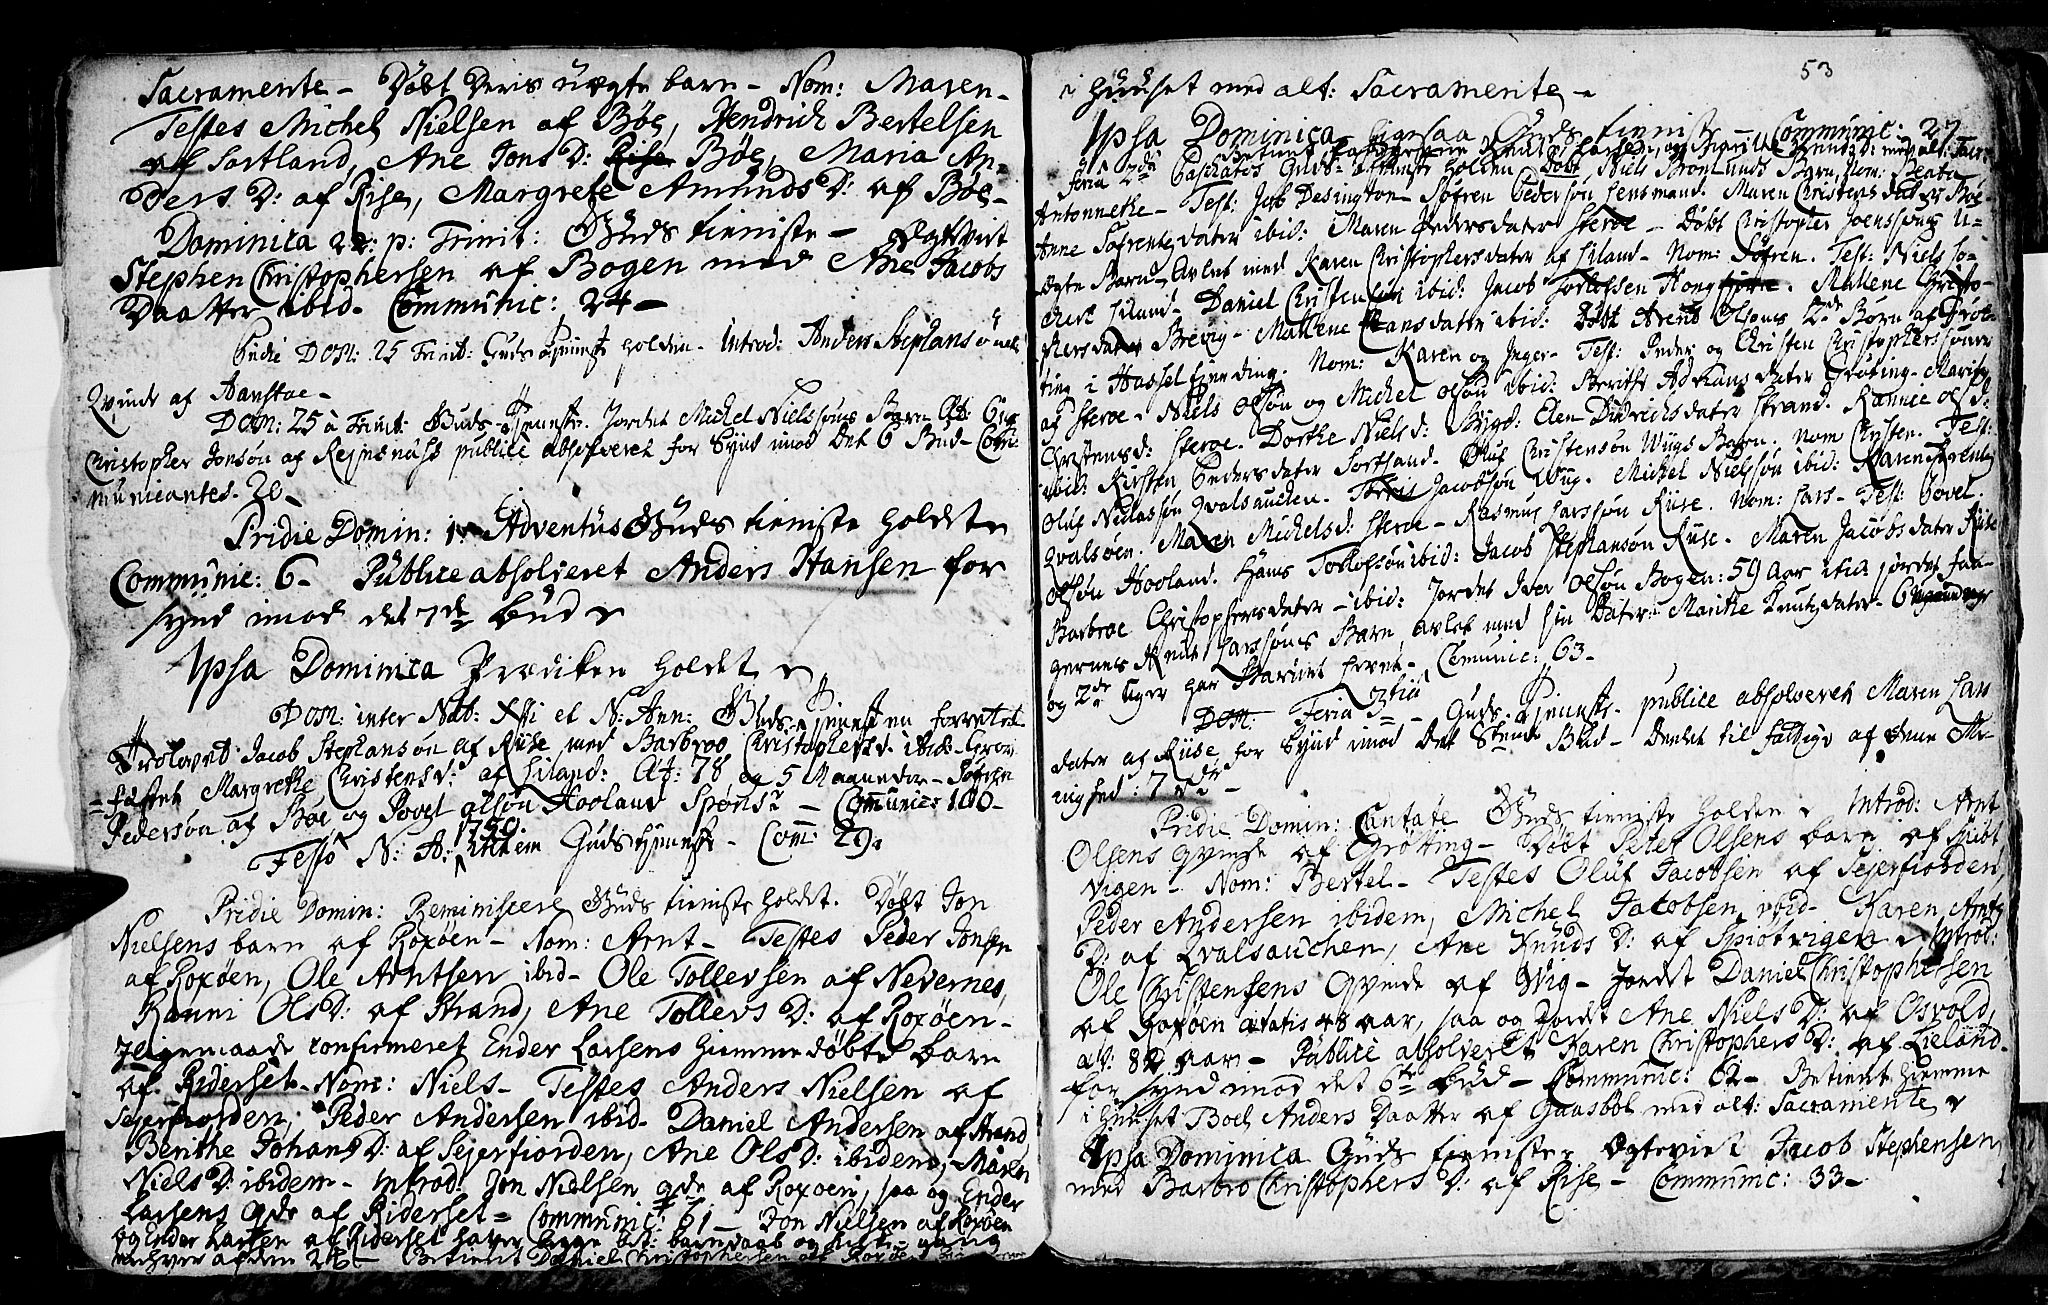 Sacramente - Döbt Deris uægte barn - Nom: Maren -
Testes Michel Nielsen af Böe, Hendrich Bertelsen
af Sortland, Ane Jons D: Böe, Maria An-
ders D: af Rise, Margrete Amunds D: af Böe -
Dominica 22: p: Trinit: Guds tieniste - Ægtviet
Stephen Christophersen af Bogen med Ane Jacobs
Daatter ibid - Communic: 24 -
Pridie Dom: 25 Trinit: Guds tjenneste holden - Introd: Anders Stephansøns
Qvinde af Aanstae -
Dom: 25 à Trinit: Guds-Tjenneste. Jordet Michel Nielssøns Barn Æt: 6 ug
Christopher Jonsøn af Rejnsnæss publice absolveret for Synd imod det 6 Bud - Com-
municantes. 20 -
Pridie Domin: 1 Adventus Guds tieniste holdet
Communic: 6 - Publice absolveret Anders Hansen for
synd imod det 7de bud
Ipsa Dominica Prædiken holdet
Dom: inter Nat: Xsti et N: Ann: Guds-Tjenesten forrettet
Trolovet: Jacob Stephansøn af Riise med Barbroe Christophersd: ibid:
fæstet Margrethe Christensd: af Liland: Æt: 78 og 5 Maaneder - Söfren
Pedersøn af Böe og Povel Olsøn Hooland Spons: - Communic: 100 -
1750.
Festo N: A: item Guds tjenneste - Com: 29.
Pridie Domin: Reminiscere Guds tieniste holdet. Döbt Jon
Nielsens barn af Roxöen - Nom: Arnt - Testes Peder Jonsen
af Roxöen, Ole Arntsen ibid - Ole Tollevsen af Nevernes,
Ranni Ols D: af Strand, Ane Tollevs D: af Roxöen -
Jligemaade confirmeret Ender Larsens hiemme döbte barn
af Riderset - Nom: Niels - Testes Anders Nielsen af
Sejerfiorden, Peder Andersen ibid - Daniel Andersen af Strand
Berithe Johans D: af Sejerfiorden, Ane Ols D: ibidem, Maren
Niels D: ibidem - Introd: Jon Nielsen qde af Roxöen, saa og Ender
Larsens qde af Riderset - Communic: 61 - Jon Nielsen af Roxöen
og Ender Larsen af Riderset haver begge
af dem - Betient Daniel Christophersen af Roxöen
53
i Huuset med alt: Sacramente
Ipsa Dominica ligesaa Guds tieniste - Communic: 27
Betient Knud Larsen, og Marithe Knuds D: med alt: Sacr:
Feria 2da Paschatos Guds-tienniste holden Döbt Niels Bromlunds Barn, Nom: Beata
Antonnethe - Test: Job Desington - Söfren Pedersøn Lensmand. Maren Christensdater Böe -
Anne Söfrensdater ibid: Maren Pedersdater Steroe - Döbt Christopher Joenssøns U-
ægte Barn - Avlet med Karen Christophersdater af Liland - Nom: Söfren. Test: Niels Jo-
chers Liland - Daniel Christensøn ibid: Jacob Tollefsen Kong. Mallene Christo-
phersdater Brevig - Mallene Hansdater ibid: Döbt Arent Olsøns 2de Börn af Gröt-
ting i Hassel Fierding. Nom: Karen og Inger - Test: Peder og Christen Christophersønner
af Steroe - Niels Olsøn og Michel Olsøn ibid: Berithe Adriansdater Gröting - Marithe
Christensd: Steroe. Dorthe Nielsd: Brigd: Elen Didrichsdater Strand. Rannie Olsd:
ibid: Kirsten Endersdater Sortland - Oluf Christensøn Wiigs Barn. Nom Christen. Test:
Oluf Niclassøn Qvalsauchen. Jacobsøn Wiig. Michel Nielssøn ibid: Karen Arents
Qvalsøen. Maren Michelsd: Steroe - Rasmus Larssøn Riise. Nom: Lars - Test: Povel
Olsøn Hooland. Hans Tollofsøn ibid: Jacob Stephansøn Riise - Maren Jacobsdater Riise
Barbroe Christophersdater - ibid: Jordet Iver Olsøn Bogen: 59 Aar item jordet
gernes Knut Larssøns Barn avlet med sin Dater: Marithe Knutsdater - 6
og 2de Uger har Barnet levet - Comunic: 63 -
Dom: Feria 3tia - Guds-Tjenneste - publice absolveret Maren Lars
dater af Riise for Synd imod det Siette Bud - Deelet til fattige af denne Me-
nighed: 7 rdr -
Pridie Domin: Cantate Guds tieniste holden Introd: Arnt
Olsens qvinde af Grötting - Döbt Peter Olsens barn af Spiöt
vigen - Nom: Bertel - Testes Oluf Jacobsen af Sejerfiorden,
Peder Andersen ibidem, Michel Jacobsen ibid - Karen Arnts
D: af Qvalsauchen, Ane Knuds D: af Spiötvigen Introd:
Ole Christensens Qvinde af Wig - Jordet Daniel Christophersen
af Roxöen ætatis 48 aar, saa og Jordet Ane Niels D: af Osvold,
æt: 82 aar - Publice absolveret Karen Christophers D: af Lieland -
for synd imod det 6te bud - Communic: 62 - Betient hiemme
i Huuset Boel Anders Daatter af Gaasböl med alt: Sacramente
Ipsa Dominica Guds tieniste Ægteviet Jacob Stephensen
med Barbro Christophers D: af Rise - Communic: 33 -